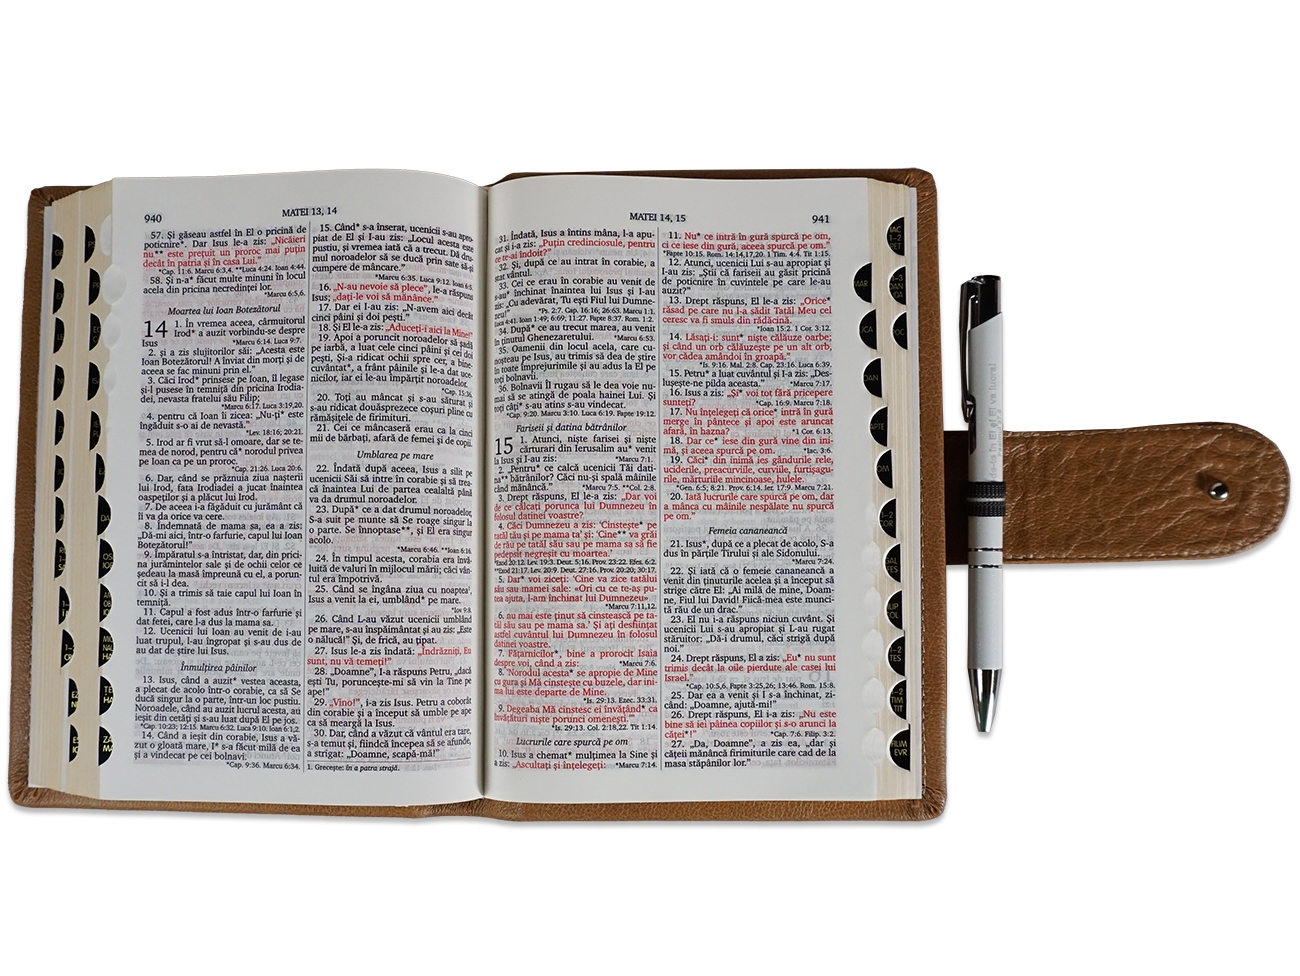 940
MATEI 13, 14
57. Și găseau astfel în El o pricină de
poticnire*. Dar Isus le-a zis: „Nicăieri
nu** este prețuit un proroc mai puțin
decât în patria și în casa Lui.”
*Cap. 11:6. Marcu 6:3,4. **Luca 4:24. Ioan 4:44.
58. Și n-a* făcut multe minuni în locul
acela din pricina necredinței lor.
*Marcu 6:5,6.
Moartea lui Ioan Botezătorul
14 1. În vremea aceea, cârmuitorul
Irod* a auzit vorbindu-se despre
Isus
*Marcu 6:14. Luca 9:7.
2. și a zis slujitorilor săi: „Acesta este
Ioan Botezătorul! A înviat din morți și de
aceea se fac minuni prin el.”
3. Căci Irod* prinsese pe Ioan, îl legase
și-l pusese în temniță din pricina Irodia-
dei, nevasta fratelui său Filip;
*Marcu 6:17. Luca 3:19,20.
4. pentru că Ioan îi zicea: „Nu-ți* este
îngăduit s-o ai de nevastă.”
*Lev. 18:16; 20:21.
5. Irod ar fi vrut să-l omoare, dar se te-
mea de norod, pentru că* norodul privea
pe Ioan ca pe un proroc.
*Cap. 21:26. Luca 20:6.
6. Dar, când se prăznuia ziua nașterii
lui Irod, fata Irodiadei a jucat înaintea
oaspeților și a plăcut lui Irod.
7. De aceea i-a făgăduit cu jurământ că
îi va da orice va cere.
8. Îndemnată de mama sa, ea a zis:
„Dă-mi aici, într-o farfurie, capul lui Ioan
Botezătorul!”
9. Împăratul s-a întristat, dar, din prici-
na jurămintelor sale și de ochii celor ce
ședeau la masă împreună cu el, a porun-
cit să i-l dea.
10. Și a trimis să taie capul lui Ioan în
temniță.
11. Capul a fost adus într-o farfurie și
dat fetei, care l-a dus la mama sa.
12. Ucenicii lui Ioan au venit de i-au
luat trupul, l-au îngropat și s-au dus de
au dat de știre lui Isus.
Înmulțirea pâinilor
13. Isus, când a auzit* vestea aceasta,
a plecat de acolo într-o corabie, ca să Se
ducă singur la o parte, într-un loc pustiu.
Noroadele, când au auzit lucrul acesta, au
ieșit din cetăți și s-au luat după El pe jos.
*Cap. 10:23; 12:15. Marcu 6:32. Luca 9:10. Ioan 6:1,2.
14. Când a ieșit din corabie, Isus a vă-
zut o gloată mare, I* s-a făcut milă de ea
și a vindecat pe cei bolnavi.
*Cap. 9:36. Marcu 6:34.
15. Când* s-a înserat, ucenicii s-au apro-
piat de El și I-au zis: „Locul acesta este
pustiu, și vremea iată că a trecut. Dă dru-
mul noroadelor să se ducă prin sate să-și
cumpere de mâncare.”
*Marcu 6:35. Luca 9:12. Ioan 6:5.
16. „N-au nevoie să plece”, le-a răspuns
Isus; „dați-le voi să mănânce.”
17. Dar ei I-au zis: „N-avem aici decât
cinci pâini și doi pești.”
18. Și El le-a zis: „Aduceți-i aici la Mine!”
19. Apoi a poruncit noroadelor să șadă
pe iarbă, a luat cele cinci pâini și cei doi
pești, Și-a ridicat ochii spre cer, a bine-
cuvântat*, a frânt pâinile și le-a dat uce-
nicilor, iar ei le-au împărțit noroadelor.
*Cap. 15:36.
20. Toți au mâncat și s-au săturat și
s-au ridicat douăsprezece coșuri pline cu
rămășițele de firimituri.
21. Cei ce mâncaseră erau ca la cinci
mii de bărbați, afară de femei și de copii.
Umblarea pe mare
22. Îndată după aceea, Isus a silit pe
ucenicii Săi să intre în corabie și să trea-
că înaintea Lui de partea cealaltă până
va da drumul noroadelor.
23. După* ce a dat drumul noroadelor,
S-a suit pe munte să Se roage singur la
o parte. Se înnoptase**, și El era singur
acolo.
*Marcu 6:46. **Ioan 6:16.
24. În timpul acesta, corabia era învă-
luită de valuri în mijlocul mării; căci vân-
tul era împotrivă.
25. Când se îngâna ziua cu noaptea¹,
Isus a venit la ei, umblând* pe mare.
*Iov 9:8.
26. Când L-au văzut ucenicii umblând
pe mare, s-au înspăimântat și au zis: „Este
o nălucă!” Și, de frică, au țipat.
27. Isus le-a zis îndată: „Îndrăzniți, Eu
sunt, nu vă temeți!”
28. „Doamne”, I-a răspuns Petru, „dacă
ești Tu, poruncește-mi să vin la Tine pe
ape!”
29. „Vino!”, i-a zis Isus. Petru a coborât
din corabie și a început să umble pe ape
ca să meargă la Isus.
30. Dar, când a văzut că vântul era tare,
s-a temut și, fiindcă începea să se afunde,
a strigat: „Doamne, scapă-mă!”
1. Grecește: în a patra strajă.
MATEI 14, 15
941
31. Îndată, Isus a întins mâna, l-a apu-
cat și i-a zis: „Puțin credinciosule, pentru
ce te-ai îndoit?”
32. Și, după ce au intrat în corabie, a
stat vântul.
33. Cei ce erau în corabie au venit de
s-au* închinat înaintea lui Isus și I-au
zis: „Cu adevărat, Tu ești Fiul lui Dumne-
zeu!”
*Ps. 2:7. Cap. 16:16; 26:63. Marcu 1:1.
Luca 4:41. Ioan 1:49; 6:69; 11:27. Fapte 8:37. Rom. 1:2.
34. După* ce au trecut marea, au venit
în ținutul Ghenezaretului.
*Marcu 6:53.
35. Oamenii din locul acela, care cu-
noșteau pe Isus, au trimis să dea de știre
în toate împrejurimile și au adus la El pe
toți bolnavii.
36. Bolnavii Îl rugau să le dea voie nu-
mai să se atingă de poala hainei Lui. Și
toți câți* s-au atins s-au vindecat.
*Cap. 9:20. Marcu 3:10. Luca 6:19. Fapte 19:12.
Fariseii și datina bătrânilor
15 1. Atunci, niște farisei și niște
cărturari din Ierusalim au* venit
la Isus și I-au zis:
*Marcu 7:1.
2. „Pentru* ce calcă ucenicii Tăi dati-
na** bătrânilor? Căci nu-și spală mâinile
când mănâncă.”
*Marcu 7:5. **Col. 2:8.
3. Drept răspuns, El le-a zis: „Dar voi
de ce călcați porunca lui Dumnezeu în
folosul datinei voastre?
4. Căci Dumnezeu a zis: ‘Cinstește* pe
tatăl tău și pe mama ta’ și: ‘Cine** va grăi
de rău pe tatăl său sau pe mama sa să fie
pedepsit negreșit cu moartea.’
*Exod 20:12. Lev. 19:3. Deut. 5:16. Prov. 23:22. Efes. 6:2.
**Exod 21:17. Lev. 20:9. Deut. 27:16. Prov. 20:20; 30:17.
5. Dar* voi ziceți: ‘Cine va zice tatălui
său sau mamei sale: «Ori cu ce te-aș pu-
tea ajuta, l-am închinat lui Dumnezeu»
*Marcu 7:11,12.
6. nu mai este ținut să cinstească pe ta-
tăl său sau pe mama sa.’ Și ați desființat
astfel cuvântul lui Dumnezeu în folosul
datinei voastre.
7. Fățarnicilor*, bine a prorocit Isaia
despre voi, când a zis:
*Marcu 7:6.
8. ‘Norodul acesta* se apropie de Mine
cu gura și Mă cinstește cu buzele, dar ini-
ma lui este departe de Mine.
*Is. 29:13. Ezec. 33:31.
9. Degeaba Mă cinstesc ei învățând* ca
învățături niște porunci omenești.’”
*Is. 29:13. Col. 2:18,22. Tit 1:14.
Lucrurile care spurcă pe om
10. Isus a chemat* mulțimea la Sine și
a zis: „Ascultați și înțelegeți:
*Marcu 7:14.
11. Nu* ce intră în gură spurcă pe om,
ci ce iese din gură, aceea spurcă pe om.”
*Fapte 10:15. Rom. 14:14,17,20. 1 Tim. 4:4. Tit 1:15.
12. Atunci, ucenicii Lui s-au apropiat și
I-au zis: „Știi că fariseii au găsit pricină
de poticnire în cuvintele pe care le-au
auzit?”
13. Drept răspuns, El le-a zis: „Orice*
răsad pe care nu l-a sădit Tatăl Meu cel
ceresc va fi smuls din rădăcină.
*Ioan 15:2. 1 Cor. 3:12.
14. Lăsați-i: sunt* niște călăuze oarbe;
și când un orb călăuzește pe un alt orb,
vor cădea amândoi în groapă.”
*Is. 9:16. Mal. 2:8. Cap. 23:16. Luca 6:39.
15. Petru* a luat cuvântul și I-a zis: „Des-
lușește-ne pilda aceasta.”
*Marcu 7:17.
16. Isus a zis: „Și* voi tot fără pricepere
sunteți?
*Cap. 16:9. Marcu 7:18.
17. Nu înțelegeți că orice* intră în gură
merge în pântece și apoi este aruncat
afară, în hazna?
*1 Cor. 6:13.
18. Dar ce* iese din gură vine din ini-
mă, și aceea spurcă pe om.
*Iac. 3:6.
19. Căci* din inimă ies gândurile rele,
uciderile, preacurviile, curviile, furtișagu-
rile, mărturiile mincinoase, hulele.
*Gen. 6:5; 8:21. Prov. 6:14. Ier. 17:9. Marcu 7:21.
20. Iată lucrurile care spurcă pe om, dar
a mânca cu mâinile nespălate nu spurcă
pe om.”
Femeia cananeancă
21. Isus*, după ce a plecat de acolo, S-a
dus în părțile Tirului și ale Sidonului.
*Marcu 7:24.
22. Și iată că o femeie cananeancă a
venit din ținuturile acelea și a început să
strige către El: „Ai milă de mine, Doam-
ne, Fiul lui David! Fiică-mea este munci-
tă rău de un drac.”
23. El nu i-a răspuns niciun cuvânt. Și
ucenicii Lui s-au apropiat și L-au rugat
stăruitor: „Dă-i drumul, căci strigă după
noi.”
24. Drept răspuns, El a zis: „Eu* nu sunt
trimis decât la oile pierdute ale casei lui
Israel.”
*Cap. 10:5,6. Fapte 3:25,26; 13:46. Rom. 15:8.
25. Dar ea a venit și I s-a închinat, zi-
când: „Doamne, ajută-mi!”
26. Drept răspuns, El i-a zis: „Nu este
bine să iei pâinea copiilor și s-o arunci la
căței*!”
*Cap. 7:6. Filip. 3:2.
27. „Da, Doamne”, a zis ea, „dar și
cățeii mănâncă firimiturile care cad de la
masa stăpânilor lor.”